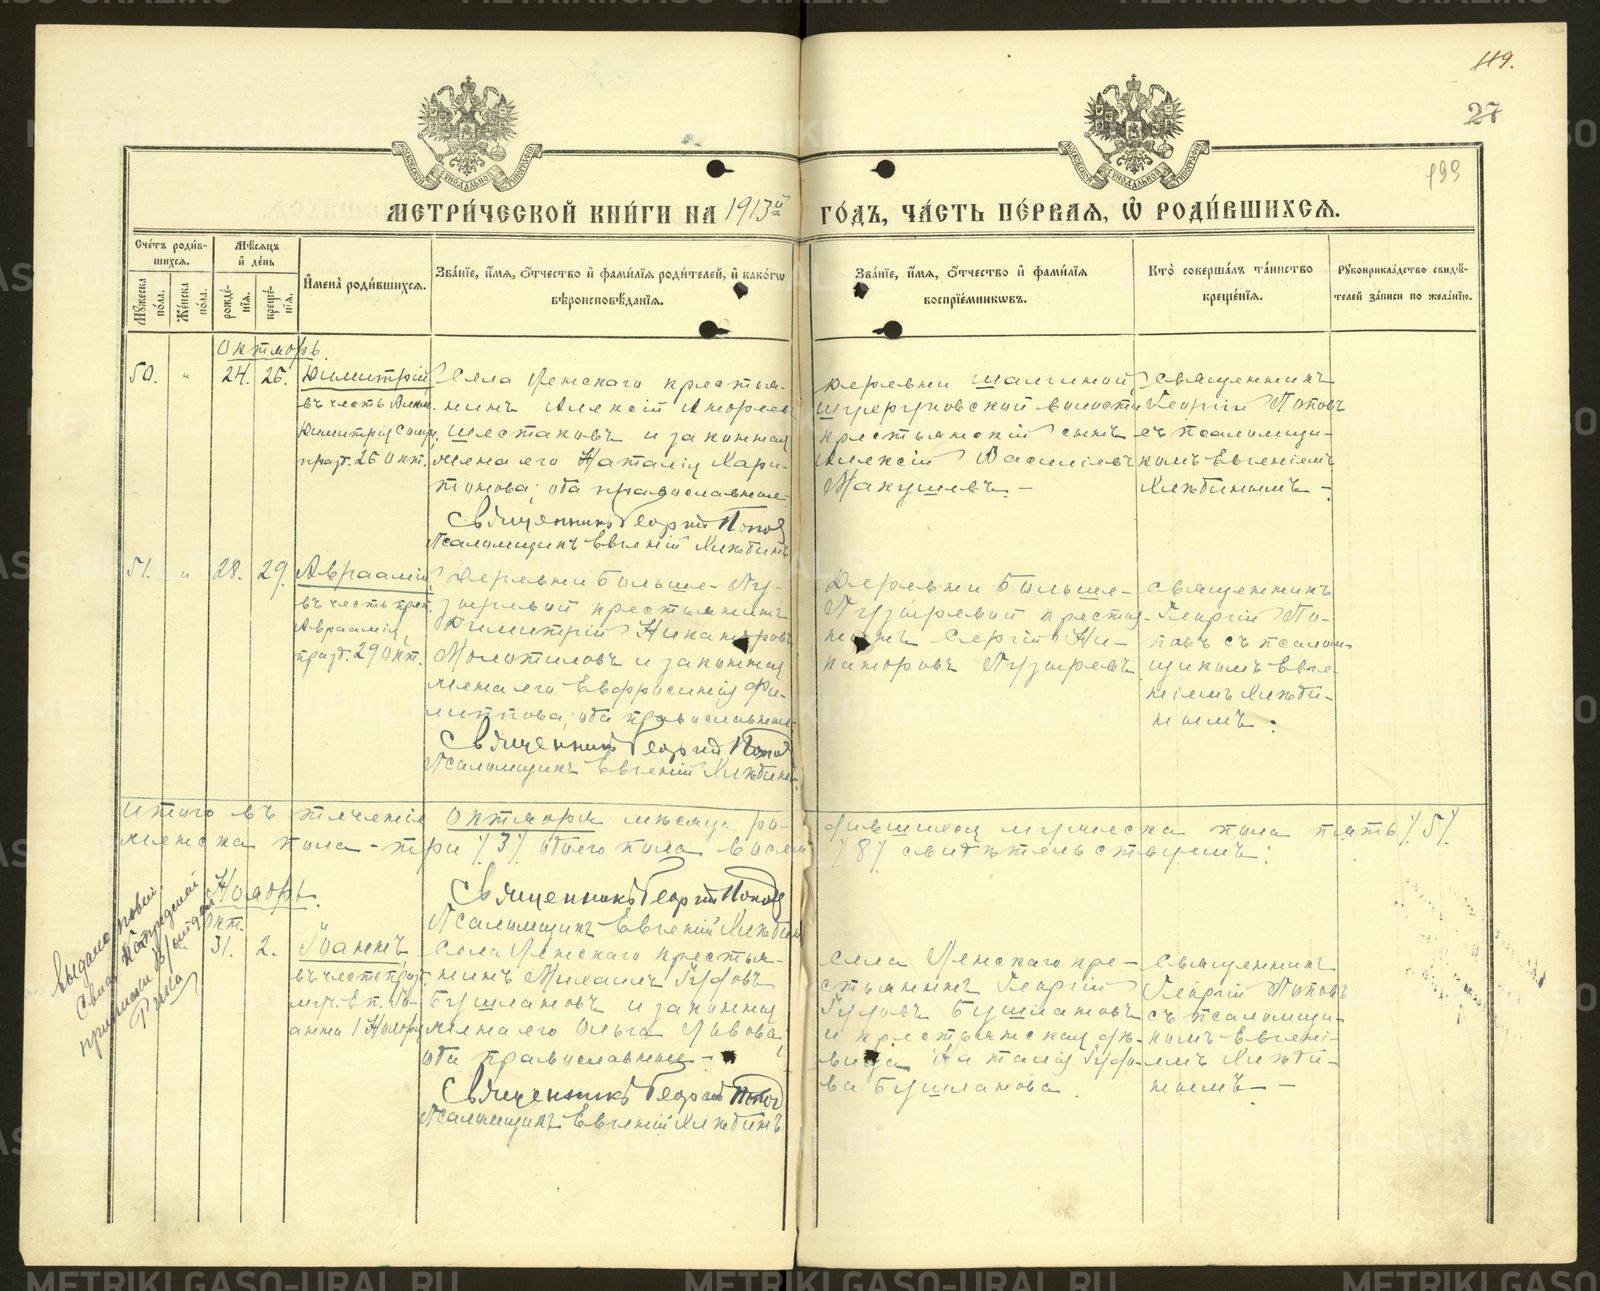 119.
27
199
МЕТРИ́ЧЕСКОЙ КНИ́ГИ НА 1913й ГО́ДЪ, ЧА́СТЬ ПЕ́РВАЯ, Ѡ҆ РОДИ́ВШИХСЯ.
Сче́тъ роди́в-
шихся.
Мѣ́сяцъ
и҆ де́нь
Мꙋ́жеска по́ла.
Же́нска по́ла.
рожде́-
нїя.
креще́-
нїя.
И҆мена̀ роди́вшихся.
Зва́нїе, и҆́мя, ѻ҆́тчество и҆ фами́лїя роди́телей, и҆ како́гѡ
вѣроисповѣ́данїя.
Зва́нїе, и҆́мя, ѻ҆́тчество и҆ фами́лїя
воспрїе́мникѡвъ.
Кто̀ соверша́лъ та́инство
креще́нїя.
Рꙋкоприкла́дство свидѣ́-
телей за́писи по жела́нїю.
Октябрь.
50. " 24. 26. Димитрій
въ честь Велик.
Димитрія Солун.
празд. 26 Окт.
Села Ленского крестья-
нинъ Алексій Андреевъ
Шестаковъ и законная
жена его Наталія Хари-
тонова; оба православные.
Священникъ Георгій Поповъ
Псаломщикъ Евгеній Хлѣбинъ
Деревни
крестьянскій сынъ
Алексій Васильевъ
Макушевъ -
Священникъ
Георгій Поповъ
съ псаломщи-
комъ Евгеніемъ
Хлѣбинымъ -
51. " 28. 29. Авраамій
въ честь преп.
Авраамія,
празд. 29 Окт.
Деревни Больше-Пу-
зыревой крестьянинъ
Димитрій Никаноровъ
Молотиловъ и законная
жена его Евфросинія Фи-
липпова; оба православные.
Священникъ Георгій Поповъ
Псаломщикъ Евгеній Хлѣбинъ
Деревни Больше-
Пузыревой крестья-
нинъ Сергій Ни-
каноровъ Пузыревъ.
Священникъ
Георгій По-
повъ съ псалом-
щикомъ Евге-
ніемъ Хлѣби-
нымъ.
Итого въ теченіе Октября мѣсяца ро-
дившихся мужеска пола пять /5/
женска пола - три /3/ обоего пола восемь
/8/ свидѣтельствуемъ:
Священникъ Георгій Поповъ
Псаломщикъ Евгеній Хлѣбинъ
Ноябрь.
Окт.
31. 2. Іоаннъ
въ честь празд.
Іо-
анна 1 Ноября
Села Ленского крестья-
нинъ Михаилъ Гурьовъ
Бушлановъ и законная
жена его Ольга Львова;
оба православные -
Священникъ Георгій Поповъ
Псаломщикъ Евгеній Хлѣбинъ
Села Ленского кре-
стьянинъ Георгій
Бушлановъ
и крестьянская дѣ-
вица Наталія
Бушланова.
Священникъ
Георгій Поповъ
съ псаломщи-
комъ Евгені-
емъ Хлѣби-
нымъ. -